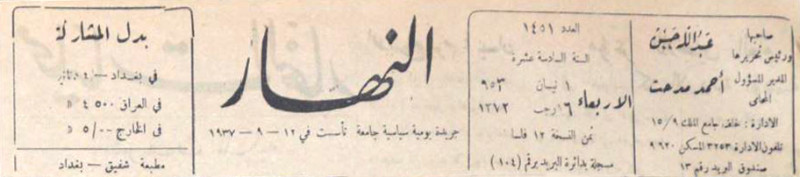 صاحبها
ورئيس تحريرها
عبد الله حسين
المدير المسؤول
المحامي
أحمد مدحت
الادارة : خلف جامع الملك ١٥/٩
تلفون الادارة ٣٢٥٣ المسكن ٩٦٢٠
صندوق البريد رقم ١٣
العدد ١٤٥١
السنة السادسة عشرة
الاربعاء
١ نيسان ٩٥٣
١٦ رجب ١٣٧٢
ثمن النسخة ١٢ فلسا
مسجلة بدائرة البريد برقم (١٠٤)
النهار
جريدة يومية سياسية جامعة تأسست في ١٢ — ٩ — ١٩٣٧
بدل المشاركة
في بغداد — /٤
في العراق ٤٥٠٠ «
في الخارج ٥/٠٠ «
مطبعة شفيق — بغداد